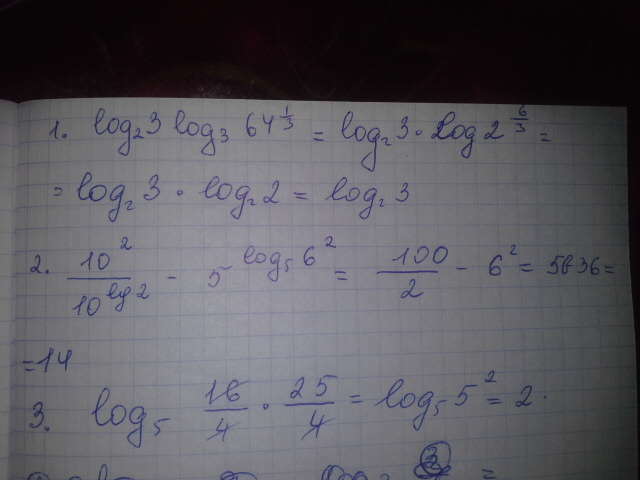 1. log₂3 log₃ 64^(1/3) = log₂3 · log 2^(6/3) =
= log₂3 · log₂2 = log₂3
2. 10²/10^(lg 2) - 5^(log₅6²) = 100/2 - 6² = 50-36 =
= 14
3. log₅ 16/4 · 25/4 = log₅5² = 2.